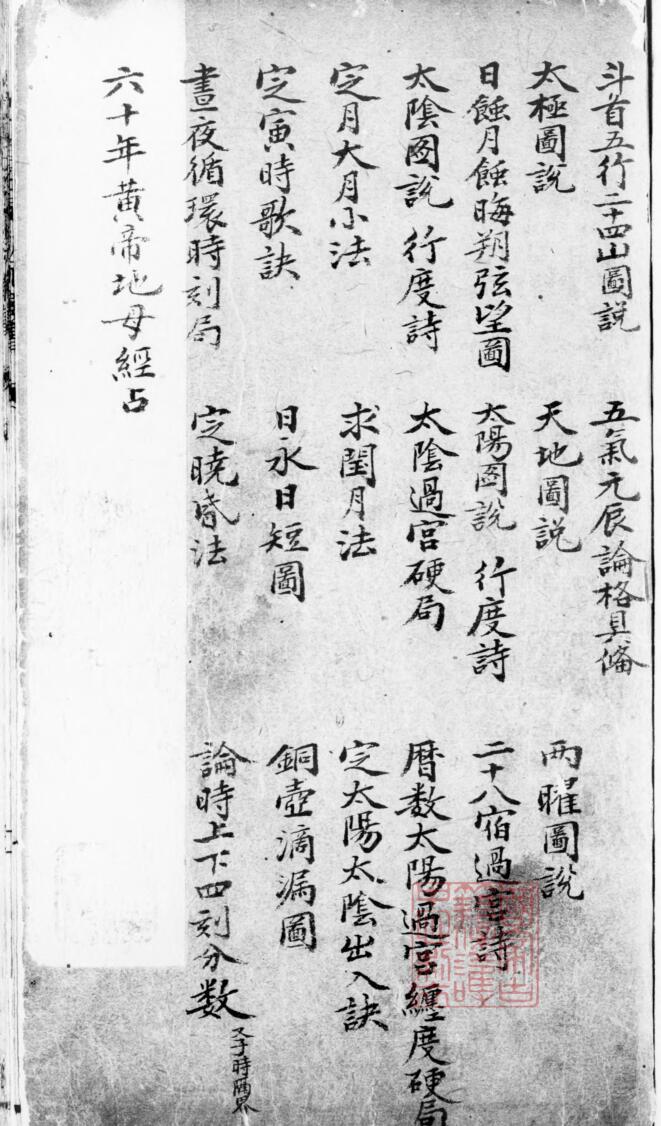 斗首五行二十四山圖說 五氣元辰論格具俻
太極圖說 天地圖說 两曜圖說
日蝕月蝕晦朔弦望圖 太陽圖說 行度詩 二十八宿過宮詩
太陰圖說 行度詩 太陰過宮硬局 曆数太陽過宮纏度硬局
定月大月小法 求閏月法 定太陽太陰出入訣
定寅時歌訣 日永日短圖 銅壺滴漏圖
晝夜循環時刻局 定曉昏法 論時上下四刻分数 又子時兩界
六十年黃帝地母經占